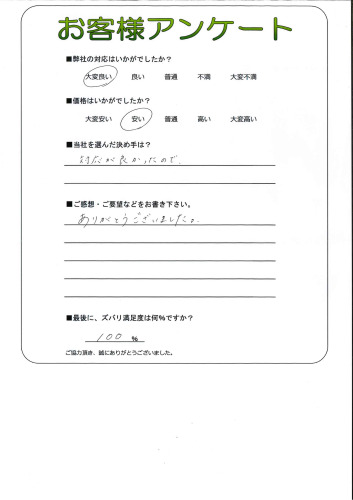 お客様アンケート
■弊社の対応はいかがでしたか？
大変良い 良い 普通 不満 大変不満
■価格はいかがでしたか？
大変安い 安い 普通 高い 大変高い
■当社を選んだ決め手は？
対応が良かったので、
■ご感想・ご要望などをお書き下さい。
ありがとうございました。
■最後に、ズバリ満足度は何%ですか？
100 %
ご協力頂き、誠にありがとうございました。